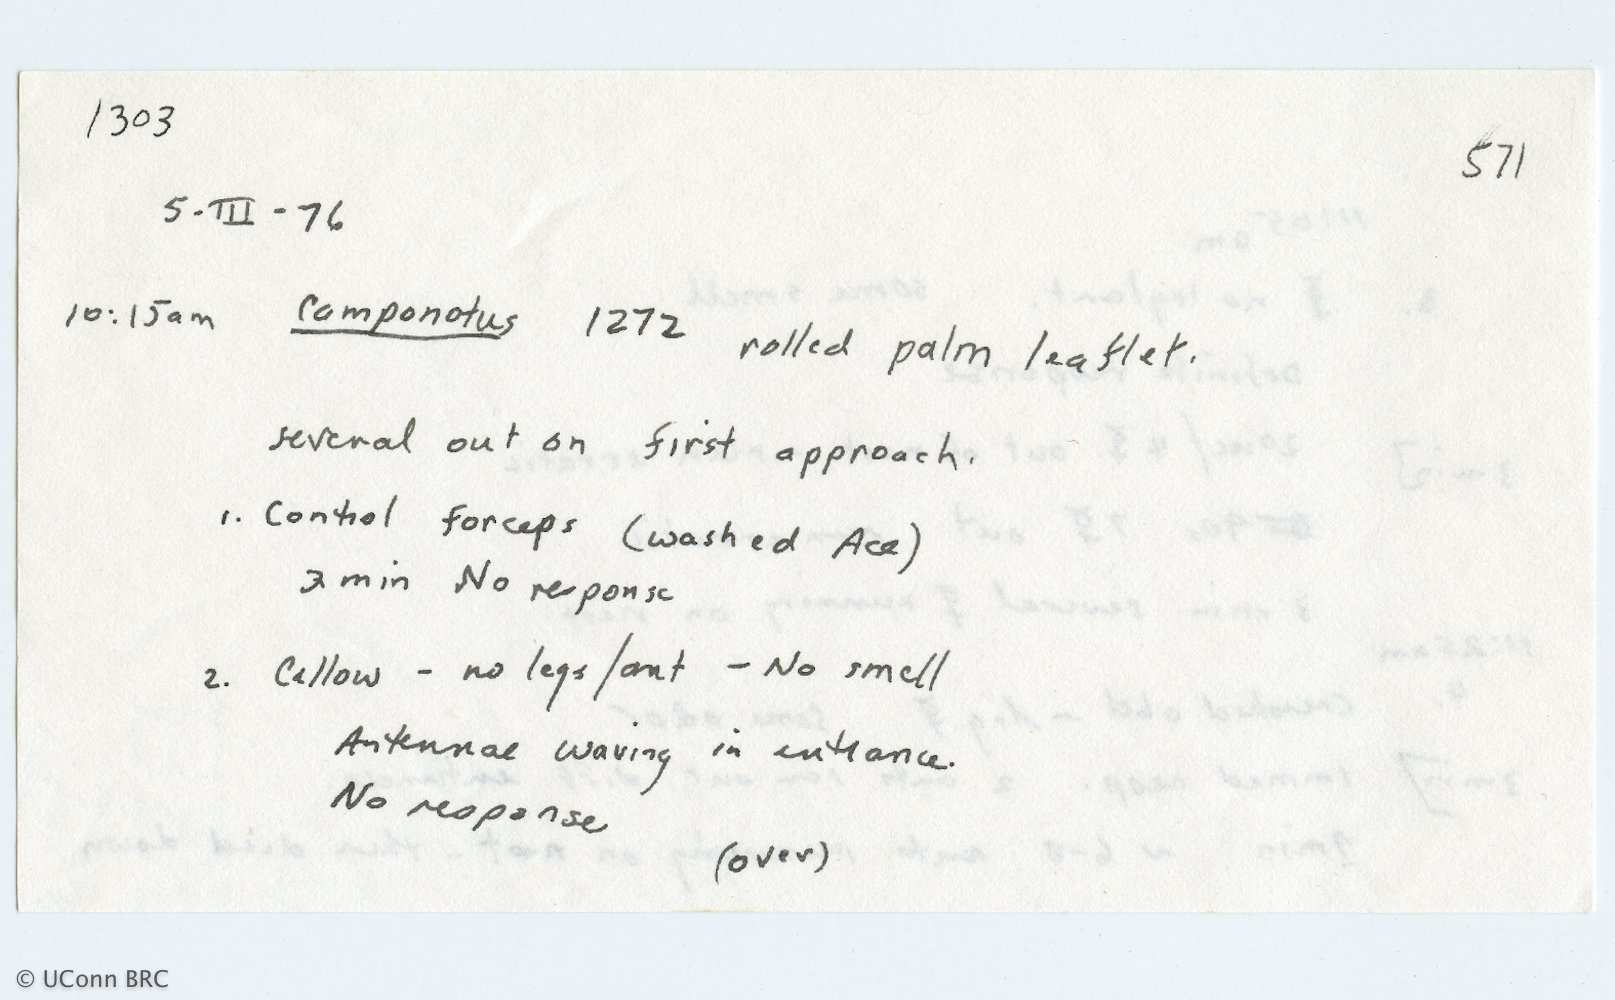 1303
571
5-III-76
10:15am Camponotus 1272 rolled palm leaflet.
several out on first approach.
1. Control forceps (washed Ace)
3 min No response
2. Callow - no legs/ant - No smell
Antennae waving in entrance.
No response
(over)
© UConn BRC